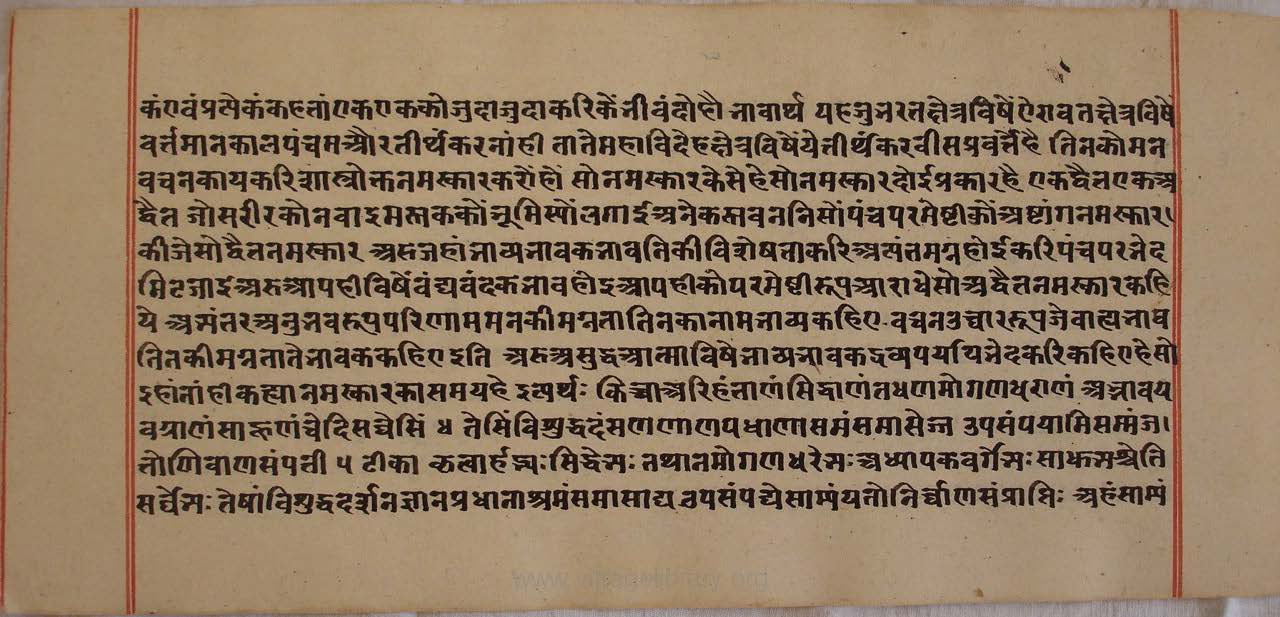 कं एवं प्रत्येकं कहतां एक एककौं जुदा जुदा करिकें भी वंदौ हौं भावार्थ यह जु भरतक्षेत्रविषें ऐरावतक्षेत्रविषें
वर्त्तमानकाल पंचम और तीर्थंकर नांही तातै महाविदेहक्षेत्रविषें ये तीर्थंकर वीस प्रवर्त्तै है तिनकौ मन
वचनकायकरि शास्त्रोक्त नमस्कार करों हों सो नमस्कार केसे हे सो नमस्कार दोई प्रकार है एक द्वैत एक अ
द्वैत जो सरीरकों नवाइ मस्तककों भूमिस्यों लगाई अनेक स्तवननिसों पंचपरमेष्टीकों अष्टांग नमस्कार
कीजे सो द्वैत नमस्कार अरु जहां भाव्यभावक भावनिकी विशेषताकरि अत्यंत मग्न होई करि पंचपर भेद
मिट जाई अरु आपही विषें वंद्यवंदकभाव होइ आपहीकौ परमेष्टीरूप आराधे सो अद्वैत नमस्कार कहि
ये अभंतर अनुभवरूप परिणाम मनकी मग्नता तिनका नाम भाव्य कहिए वचन उच्चाररूप जे वाह्यभाव
तिनकी मग्नता तै भावक कहिए इति अरु असुद्ध आत्माविषै भाव्यभावक द्रव्यपर्याय भेदकरि कहिए हे सो
इहां नांही कह्या नमस्कारका समय हे इत्यर्थः किच्चा अरिहंताणं सिद्धाणं तधणमो गणधराणं अज्ञावय
वग्गाणं साहूणं चेदि सव्वेसिं ४ तेसिं विशुद्धदंसणणाणपधाणासमं समासेज्ज उपसंपयामि सम्मं ज
त्तो णिवाणसंपत्ती ५ टीका कृत्वार्हद्भ्यः सिद्धेभ्यः तथा नमो गणधरेभ्यः अध्यापकवर्गेभ्यः साधुभ्यश्चेति
सर्व्वेभ्यः तेषां विशुद्धदर्शनज्ञानप्रधानाश्रमं समासाद्य उपसंपद्ये साम्यं यतो निर्व्वाणसंप्राप्तिः अहं साम्यं